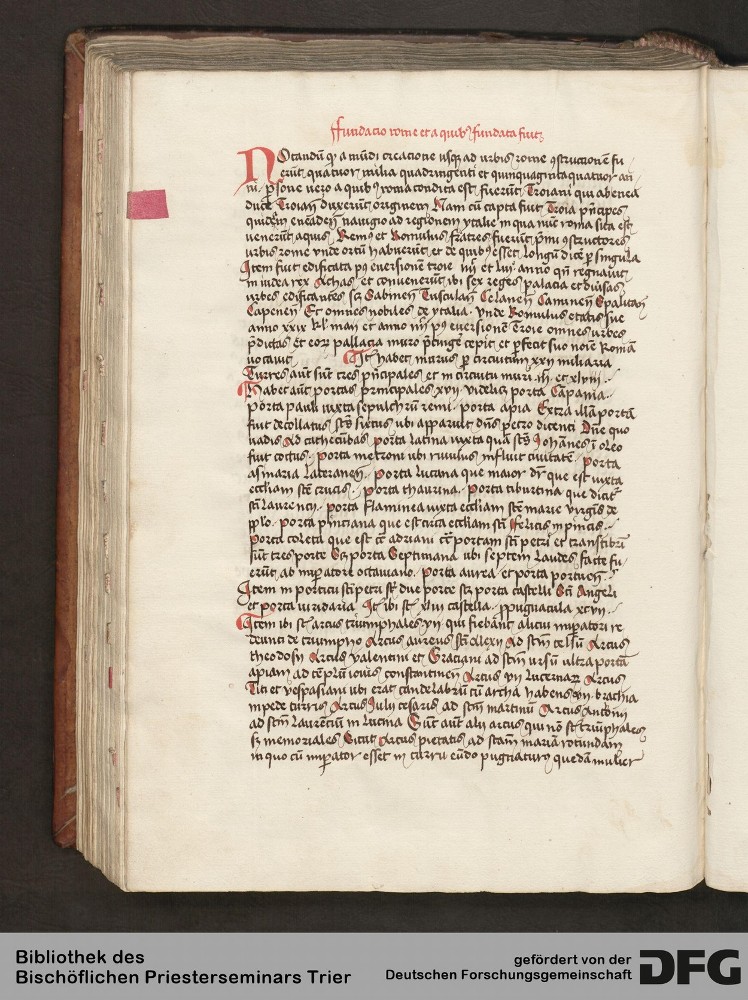 Fundacio rome et a quibus fundata fuit
NOtandum quod a mundi creacione usque ad urbis rome constructionem fu
erunt quatuor milia quadringenti et quinquaginta quatuor an
ni. persone vero a quibus roma condita est fuerunt Troiani qui ab enea
duce Troian duxerunt originem Nam cum capta fuit Troia principes
quidem eneadem navigio ad regionem ytalie in qua nunc roma sita est
venerunt a quis Remus et Romulus fratres fuerunt primi constructores
urbis rome unde ortum habuerunt et de quibus esset longum dicere per singula
Item fuit edificata post eversionem troie iiii et lvi anno quando regnavit
in iudea rex Achas et convenerunt ibi sex reges palacia et divisas
urbes edificantes scilicet Sabinen Tusculan
Capenen Et omnes nobiles de ytalia. Unde Romulus etatis sue
anno xxix kl maii et anno iiii post eversionem Troie omnes urbes
predictas et eorum pallacia muro precingere cepit et perfecit suo nomine Romam
vocavit Item habet murus per circuitum xxii miliaria
Turres autem sunt tres principales et in circuitu muri iii et xlviii
Habet autem portas principales xvii videlicet porta Capania
porta pauli iuxta sepulchrum remi. porta apia Extra illam portam
fuit decollatus sanctus sixtus ubi apparuit dominus petro dicenti Domine quo
vadis Ad cathecumbas porta latina iuxta quam sanctus Iohannes in oleo
fuit coctus. porta metroni ubi rivulus influit civitatem. porta
asinaria Lateranen. Porta lucana que maior dicitur que est iuxta
ecclesiam sancte crucis. porta thaurina. porta tiburtina que dicitur
sancti laurencii. porta flaminea iuxta ecclesiam sancte marie virginis de
pplo. porta pinciana que est circa ecclesiam sancti felicis in pincis.
Porta coleta que est circa adriani circa portam sancti petri et transtiberim
sunt tres porte scilicet porta Septimiana ubi septem laudes facte fu
erunt ab imperatore octaviano. porta aurea et porta portuen.
Item in porticu sancti petri sunt due porte scilicet porta castelli Sancti Angeli
et porta viridaria. Item ibi sunt castella. propugnacula
Item ibi sunt arcus triumphales vii qui fiebant alicui imperatori re
deunti de triumpho Arcus aureus sancti Alexii Ad sanctum celsum Arcus
theodosii Arcus valentini et Graciani ad sanctum ursum ultra portam
apiam ad templum iovis constantinen Arcus vii lucernarum Arcus
Titi et vespasiani ubi erat candelabrum cum archa habens vii brachia
in pede turris Arcus Iulii cesaris ad sanctum martinum Arcus Antonii
ad sanctum laurencium in lucina Sunt autem alii arcus qui non sunt triumphales
sed memoriales Sicut Arcus pietatis ad sanctam mariam rotundam
in quo cum imperator esset in curru eundo pugnaturus quedam mulier
Bibliothek des
Bischöflichen Priesterseminars Trier
gefördert von der
Deutschen Forschungsgemeinschaft
DFG